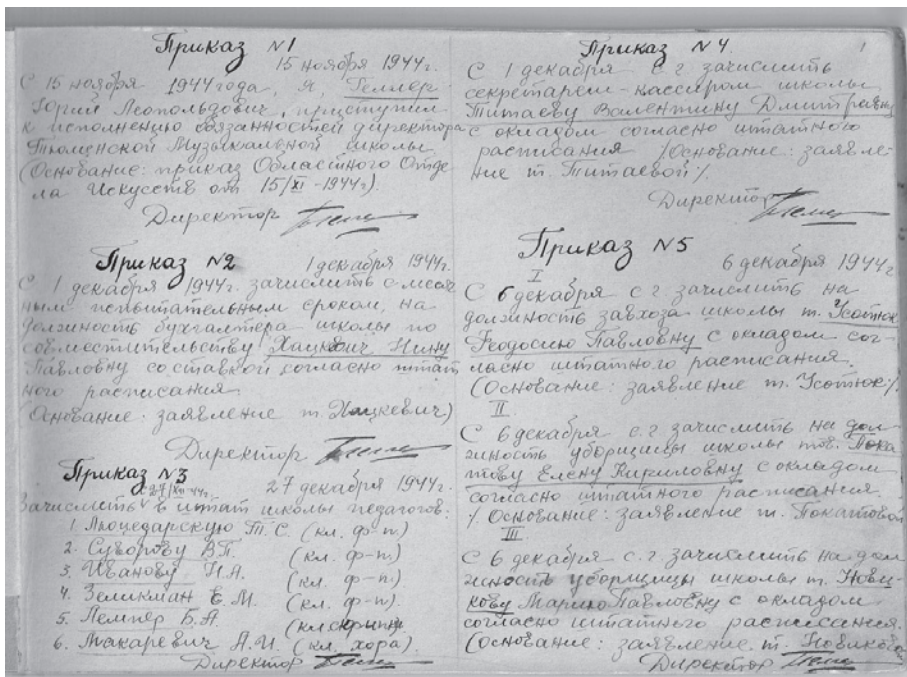 Приказ №1
15 ноября 1944г.
С 15 ноября 1944 года, я, Геллер
Юрий Леопольдович, приступил
к исполнению обязанностей директора
Тюменской Музыкальной школы
(Основание: приказ Областного Отде
ла Искусств от 15/XI-1944г).
Директор
Приказ №2
1 декабря 1944г.
С 1 декабря 1944г. зачислить с месяч
ным испытательным сроком, на
должность бухгалтера школы по
совместительству Хацкевич Нину
Павловну со ставкой согласно штат
ного расписания
(Основание: заявление т. Хацкевич)
Директор
Приказ №3
27 декабря 1944г.
с 27/XII-44г.
Зачислить в штат школы педагогов:
1. Люцедарскую Т.С. (кл. ф-п.)
2. Суворову В.П. (кл. ф-п)
3. Иванову Н.А. (кл. ф-п)
4. Зеликман Е.М. (кл. ф-п).
5. Б.А. (кл. скрипки)
6. Макаревич А.И. (кл. хора).
Директор
1
Приказ №4.
С 1 декабря с.г. зачислить
секретарем-кассиром школы
Титаеву Валентину Дмитриевну
с окладом согласно штатного
расписания /Основание: заявле-
ние т. Титаевой/.
Директор
Приказ №5
6 декабря 1944г
I
С 6 декабря с.г. зачислить на
должность завхоза школы т. Усотюк
Феодосию Павловну с окладом сог-
ласно штатного расписания.
(Основание: заявление т. Усотюк/.
II.
С 6 декабря с.г. зачислить на дол-
жность уборщицы школы тов. Пока-
тову Елену Кириловну с окладом
согласно штатного расписания.
/Основание: заявление т. Покатовой
III
С 6 декабря с.г. зачислить на дол
жность уборщицы школы т. Нови-
кову Марию Павловну с окладом
согласно штатного расписания.
(Основание: заявление т. Новиковой
Директор